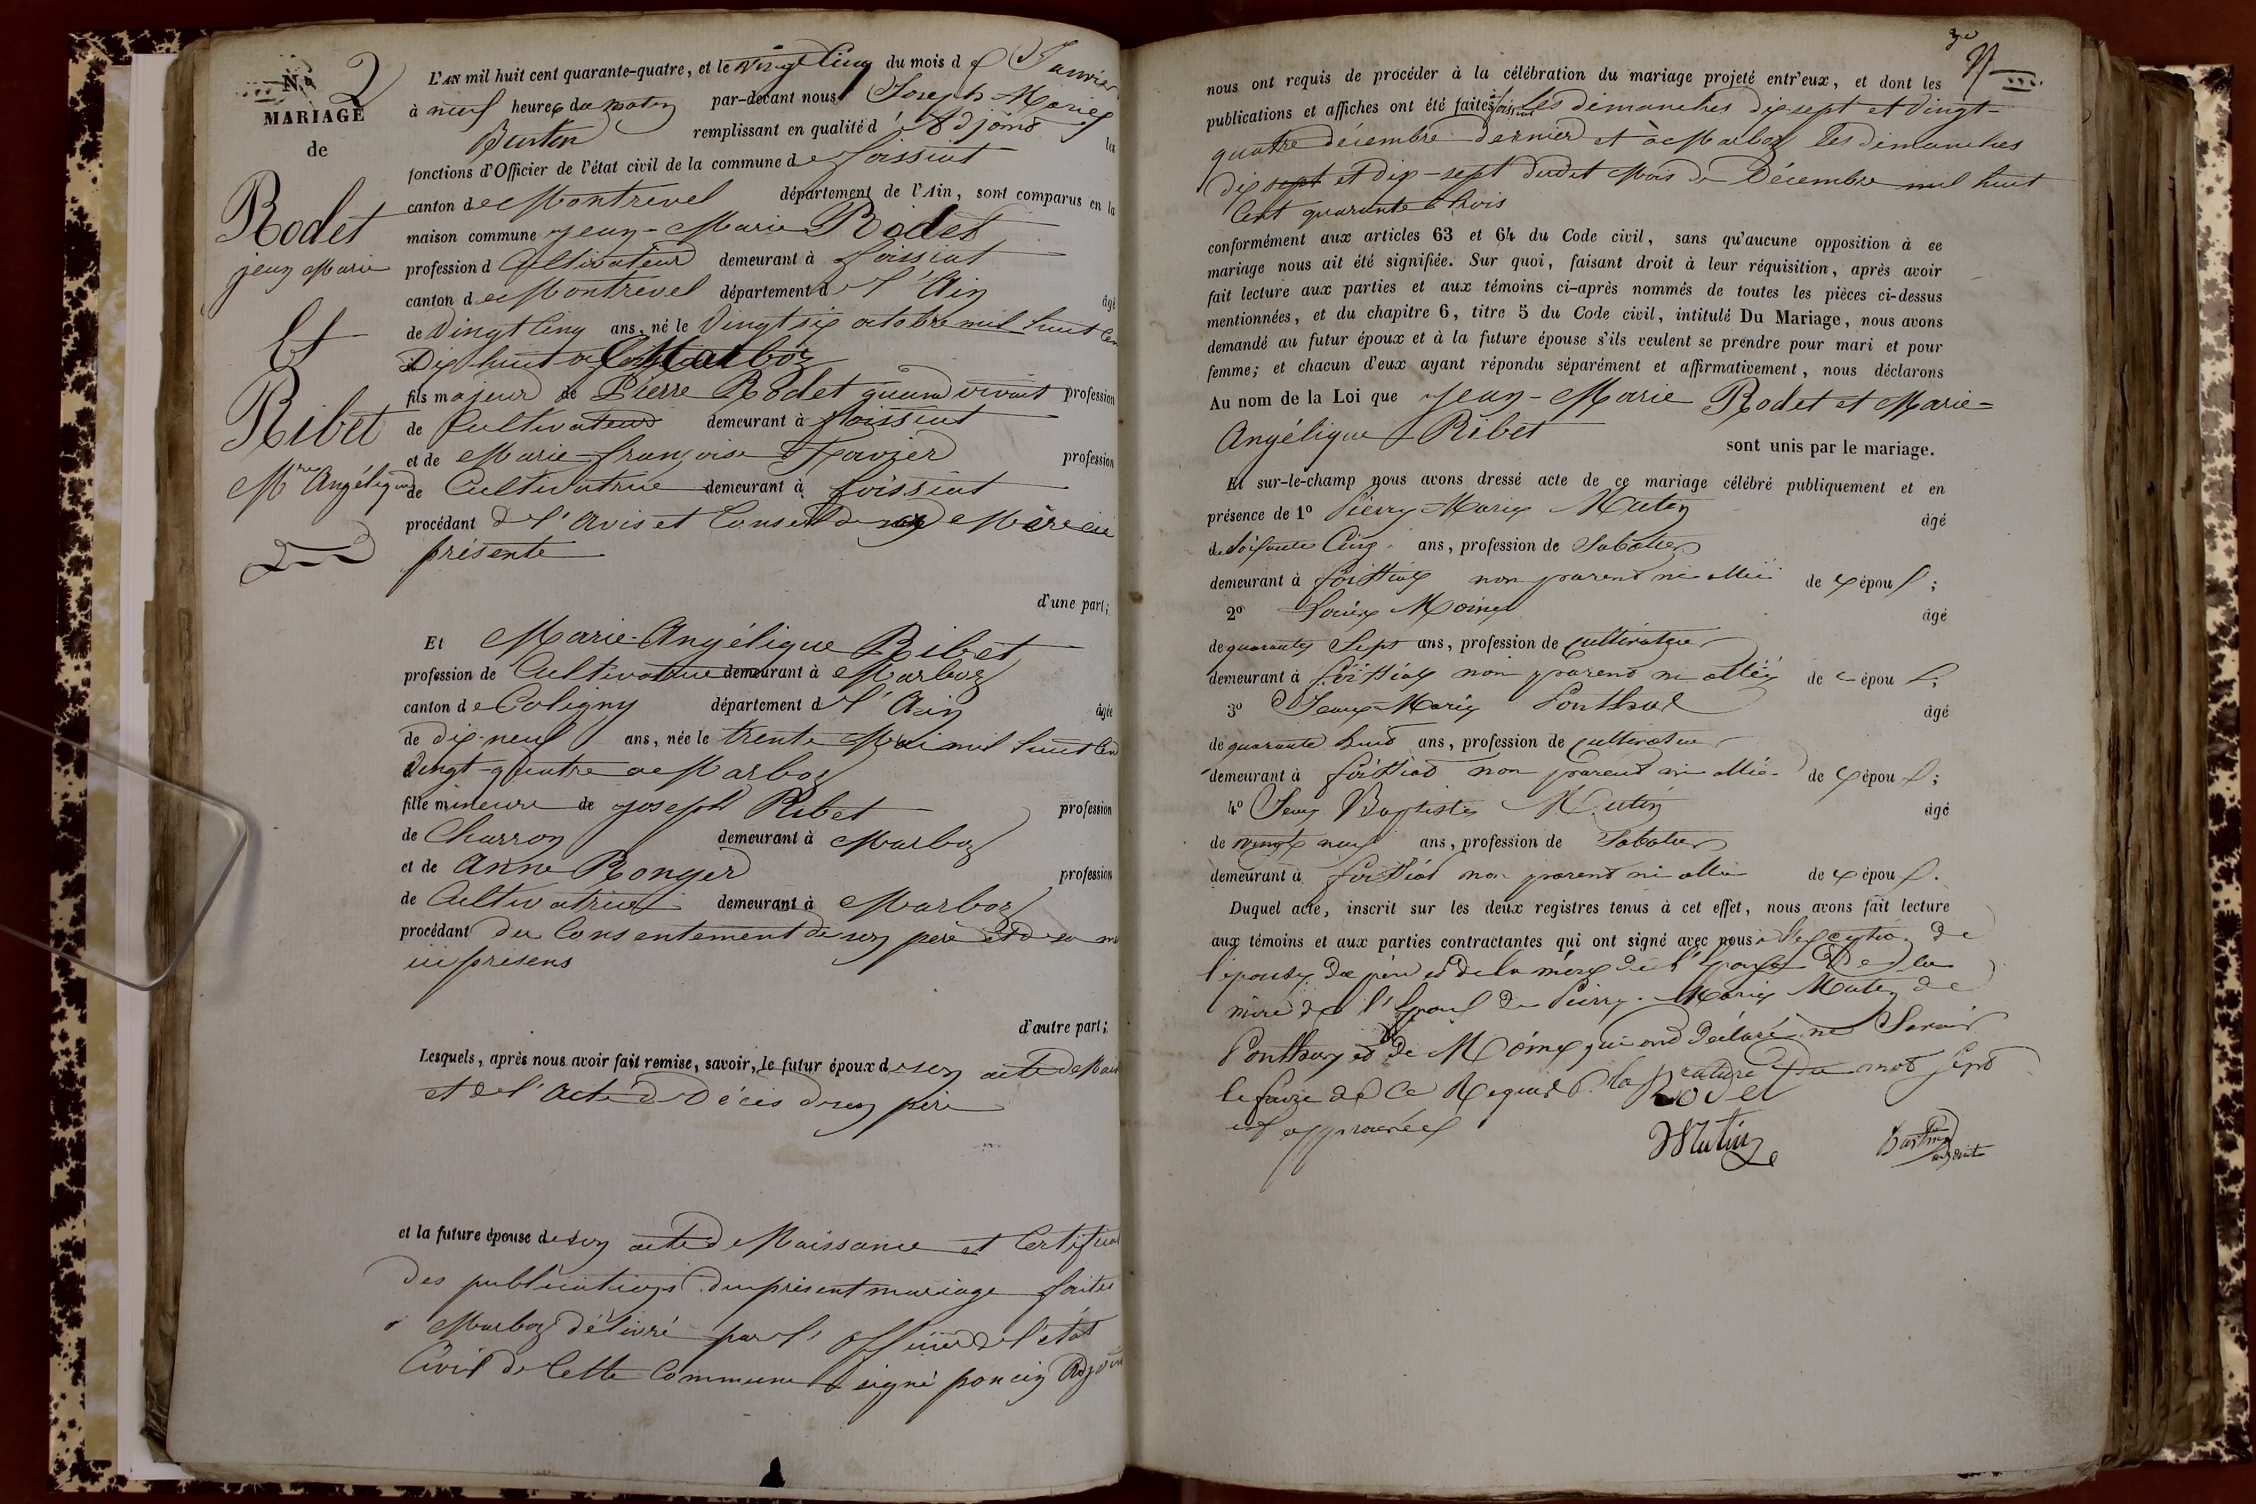 N.º 2
MARIAGE
de
Rodet
jean Marie
Et
Ribet
Mie Angélique
L'AN mil huit cent quarante-quatre, et le vingt Cinq du mois de Janvier
à neuf heures du matin par-devant nous Joseph Marie
Burtin remplissant en qualité d'Adjoint les
fonctions d'Officier de l'état civil de la commune de foissiat
canton de Montrevel département de l'Ain, sont comparus en la
maison commune jean-Marie Rodet
profession d Cultivateur demeurant à foissiat
canton de Montrevel département d l'Ain âgé
de Vingt Cinq ans, né le Vingt six octobre mil huit Cent
Dix huit à Marboz
fils majeur de Pierre Rodet quand vivait profession
de Cultivateur demeurant à foissiat
et de Marie-françoise profession
de Cultivatrice demeurant à foissiat
procédant de l'Avis et Conseil de sa Mère ici
présente
d'une part;
Et Marie-Angélique Ribet
profession de Cultivatrice demeurant à Marboz
canton de Coligny département d l'Ain âgée
de dix-neuf ans, née le trente Mai mil huit Cent
Vingt-quatre à Marboz
fille mineure de joseph Ribet profession
de Charron demeurant à Marboz
et de Anne Ronger profession
de Cultivatrice demeurant à Marboz
procédant du Consentement de son père et de sa mère
ici présens
d'autre part;
Lesquels, après nous avoir fait remise, savoir, le futur époux de son acte de Nais
et de l'Acte de Décès de son père
et la future épouse de son acte de Naissance et Certificat
des publications du présent mariage faites
à Marboz délivré par l'officier de l'état
Civil de Cette Commune signé poncin Adjoint
3e
nous ont requis de procéder à la célébration du mariage projeté entr'eux, et dont les
publications et affiches ont été faites à foissiat les dimanches dix sept et Vingt-
quatre décembre dernier et à Marboz les dimanches
dix sept et dix-sept dudit Mois de Décembre mil huit
Cent quarante trois
conformément aux articles 63 et 64 du Code civil, sans qu'aucune opposition à ce
mariage nous ait été signifiée. Sur quoi, faisant droit à leur réquisition, après avoir
fait lecture aux parties et aux témoins ci-après nommés de toutes les pièces ci-dessus
mentionnées, et du chapitre 6, titre 5 du Code civil, intitulé Du Mariage, nous avons
demandé au futur époux et à la future épouse s'ils veulent se prendre pour mari et pour
femme; et chacun d'eux ayant répondu séparément et affirmativement, nous déclarons
Au nom de la Loi que jean-Marie Rodet et Marie-
Angélique Ribet sont unis par le mariage.
Et sur-le-champ nous avons dressé acte de ce mariage célébré publiquement et en
présence de 1º Pierre Marie Mutin âgé
de Soixante Cinq ans, profession de Sabotier
demeurant à foissiat non parent ni allié de l'épou ;
2º Moine âgé
de quarante Sept ans, profession de cultivateur
demeurant à foissiat non parent ni allié de l'épou ;
3º Jean-Marie Ponthus âgé
de quarante huit ans, profession de cultivateur
demeurant à foissiat non parent ni allié de l'épou ;
4º Jean Baptiste Mutin âgé
de vingt neuf ans, profession de Sabotier
demeurant à foissiat non parent ni allié de l'épou .
Duquel acte, inscrit sur les deux registres tenus à cet effet, nous avons fait lecture
aux témoins et aux parties contractantes qui ont signé avec nous à l'exception de
l'épouse du père et de la mère de l'épouse de la
mère de l'Epoux de Pierre-Marie Mutin de
Ponthus et de Moine qui ont déclaré ne Savoir
le faire de ce Requis la rature du mot sept
est approuvée
Rodet
Mutin
Burtin
adjoint